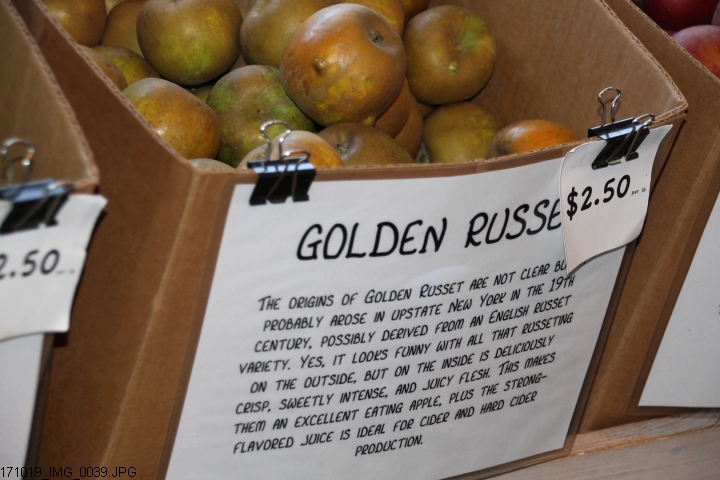 GOLDEN RUSSE
$2.50 per lb
2.50
THE ORIGINS OF GOLDEN RUSSET ARE NOT CLEAR BU
PROBABLY AROSE IN UPSTATE NEW YORK IN THE 19TH
CENTURY, POSSIBLY DERIVED FROM AN ENGLISH RUSSET
VARIETY. YES, IT LOOKS FUNNY WITH ALL THAT RUSSETING
ON THE OUTSIDE, BUT ON THE INSIDE IS DELICIOUSLY
CRISP, SWEETLY INTENSE, AND JUICY FLESH. THIS MAKES
THEM AN EXCELLENT EATING APPLE, PLUS THE STRONG-
FLAVORED JUICE IS IDEAL FOR CIDER AND HARD CIDER
PRODUCTION.
171019_IMG_0039.JPG